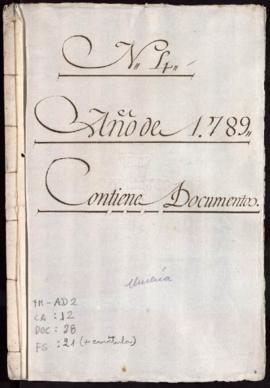 N,, 4,,
Año de 1.789,,
Contiene Documentos.
AM-AD2
CA : 12
DOC : 28
FS : 21 (+ carátula)